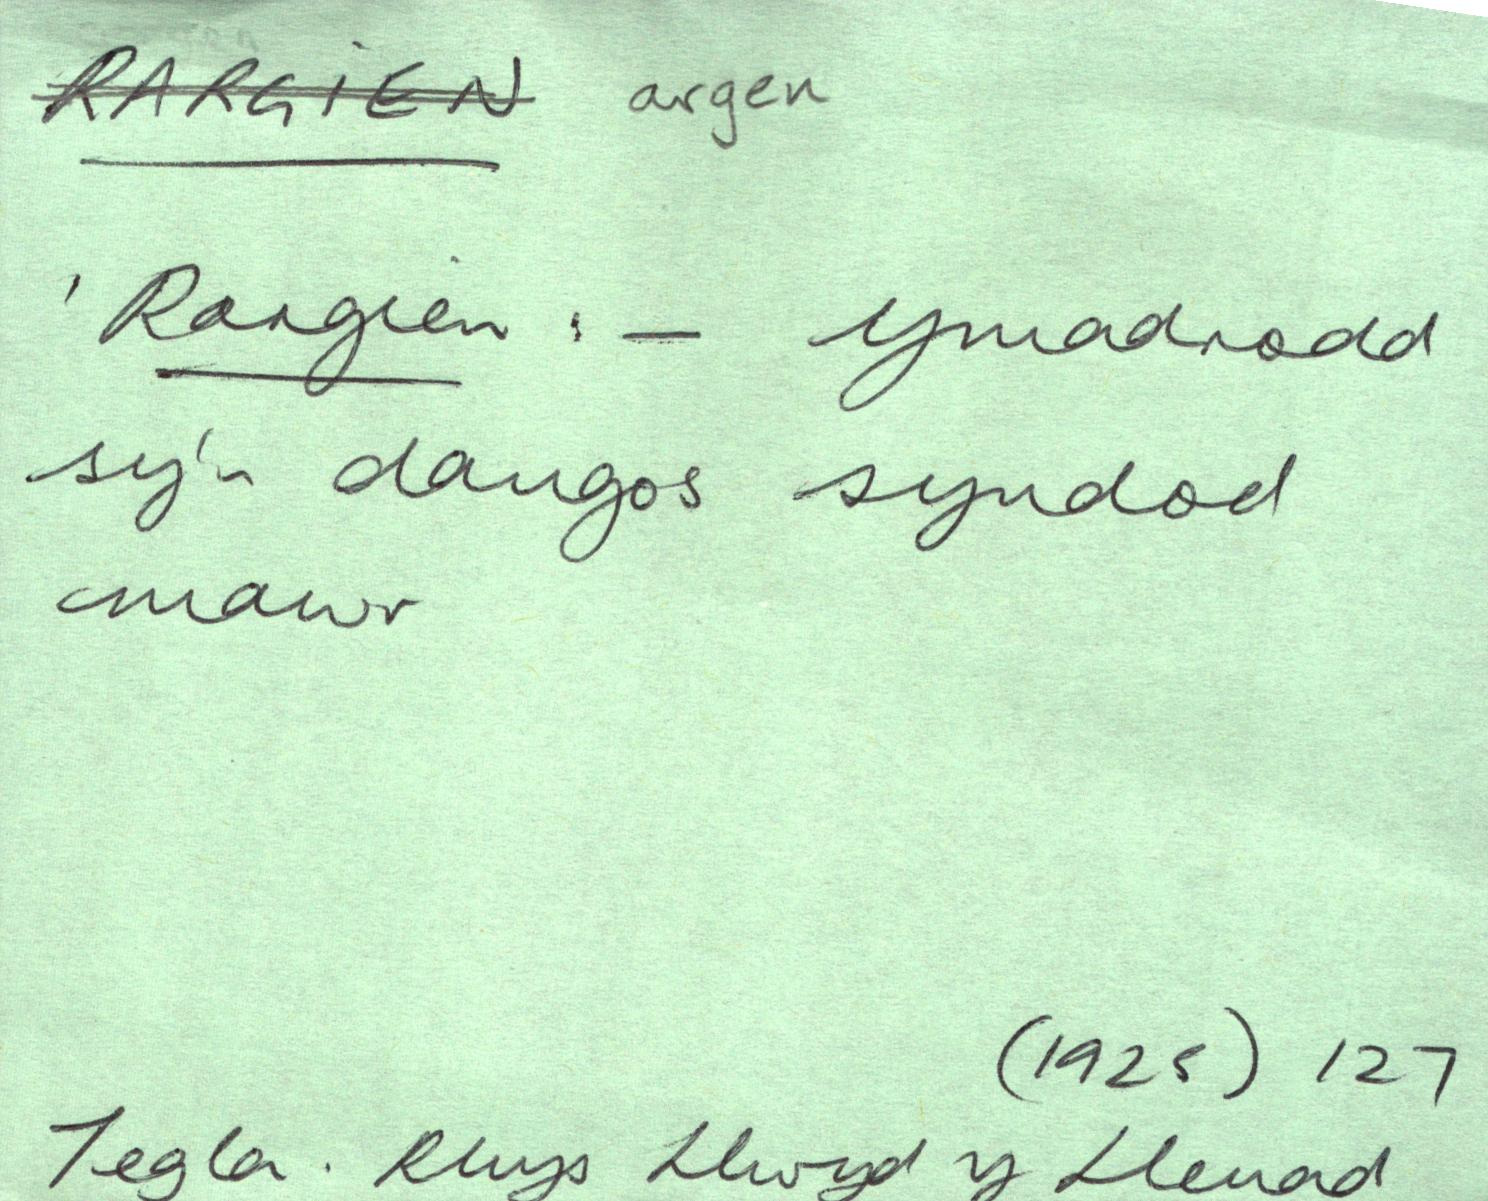 RARGIEN argen
'Rargien :— ymadrodd
sy'n dangos syndod
mawr
(1925) 127
Tegla. Rhys Llwyd y Lleuad